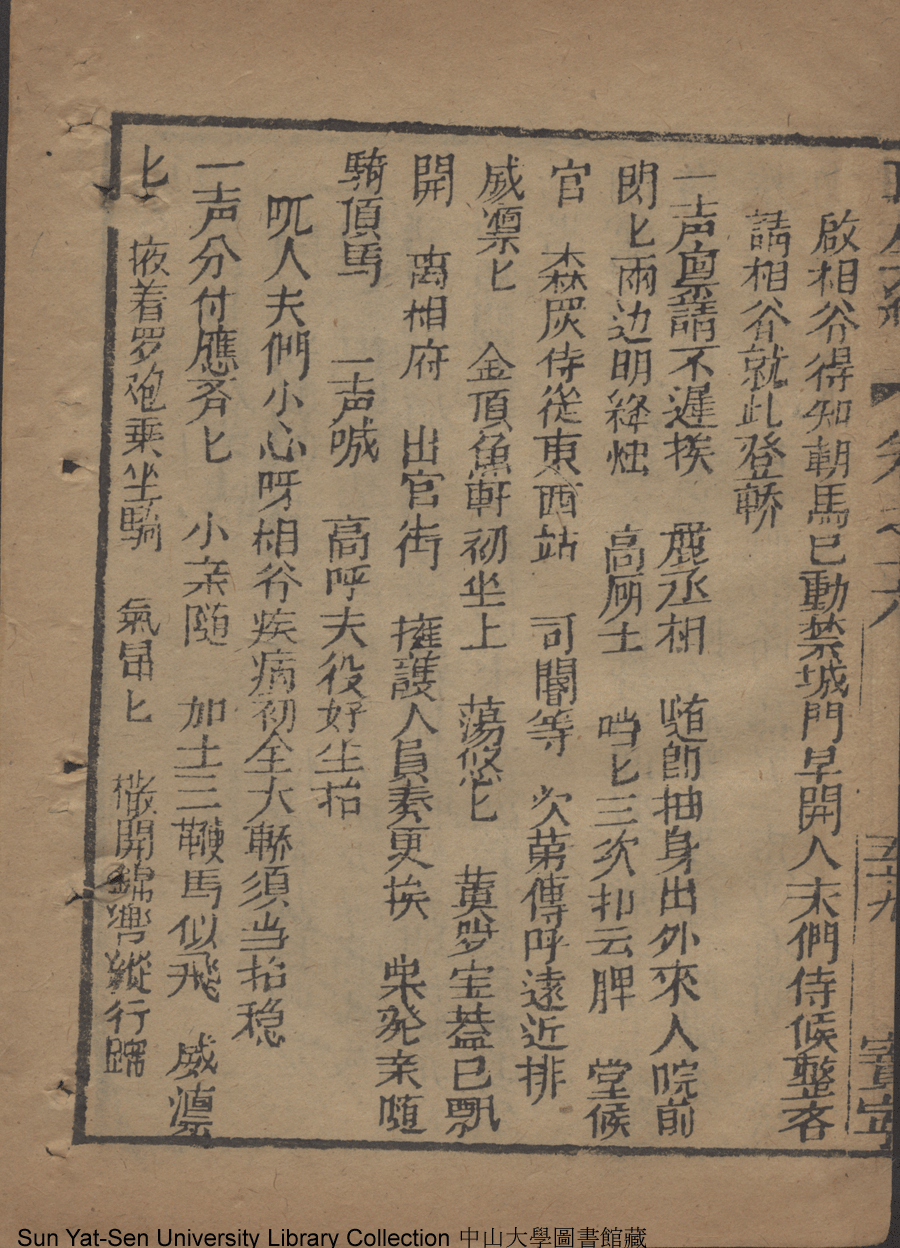 卷之六 五十九
啟相爷得知朝馬已動禁城門早開人夫們侍候整吝
請相爷就此登轎
一声禀請不遲挨 鹿丞相 随即抽身出外來人院前
閃匕兩边明絳烛 高𠩄士 啨匕三次扣云牌 堂候
官 森炭侍從東西站 司閽等 次第傳呼遠近排
威禀匕 金頂魚軒初坐上 蕩悠匕 黄罗宝蓋已飘
開 离相府 出官街 擁護人員奏更挨 柴発亲随
騎頂馬 一声喊 高呼夫役好生抬
呪人夫們小心呀相爷疾病初全大轎須当抬稳
一声分付應斉匕 小亲随 加土三鞭馬似飛 威凛
匕 掖着罗袍乗坐騎 氣昂匕 撒開錦轡縱行蹄
Sun Yat-Sen University Library Collection 中山大學圖書館藏